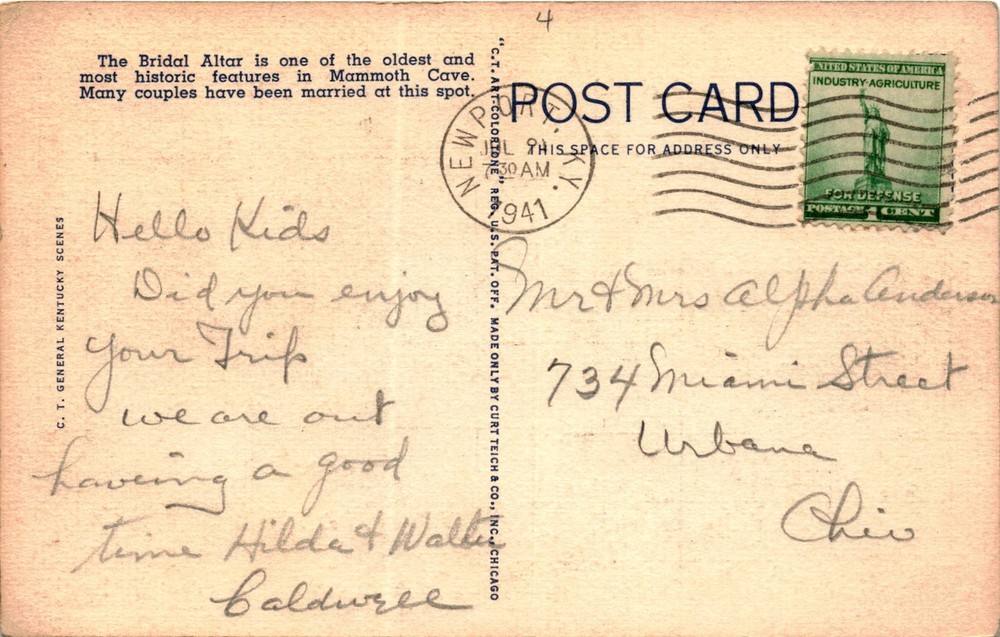 4
The Bridal Altar is one of the oldest and
most historic features in Mammoth Cave.
Many couples have been married at this spot.
C. T. GENERAL KENTUCKY SCENES
Hello Kids
Did you enjoy
your Trip
we are out
haveing a good
time Hilda & Walter
Caldwell
"C.T. ART-COLORTONE" REG. U.S. PAT. OFF. MADE ONLY BY CURT TEICH & CO., INC., CHICAGO
POST CARD
THIS SPACE FOR ADDRESS ONLY
NEWPORT, KY.
JUL
7 30 AM
1941
UNITED STATES OF AMERICA
INDUSTRY·AGRICULTURE
FOR DEFENSE
POSTAGE 1 CENT
Mr & Mrs Alpha Anderson
734 Miami Street
Urbana
Ohio